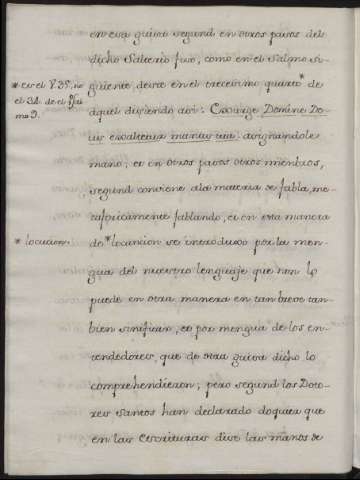 en esta guisa segund en otros pasos del
dicho Salterio fizo, como en el Salmo si-
guiente, desta en el treceseno quarto* de
* es el V. 35, no
el 34. de el Psal-
mo 9.
aquel disiendo asi: Exsurge Domine De-
us exaltetur manus tua: asignandole
mano; et en otros pasos otros miembros,
segund conviene ala materia de fabla, me-
taforicamente fablando, et en esta manera
* locucion.
de *locanion se introduxo por la men-
gua del nuestro lenguaje que non lo
puede en otra manera en tan breve tan-
bien sinificar, et por mengua de los en-
tendedores, que de otra guisa dicho lo
comprehendieron; pero segund los Doto-
res santos han declarado doquier que
en las Escrituras dise las manos de